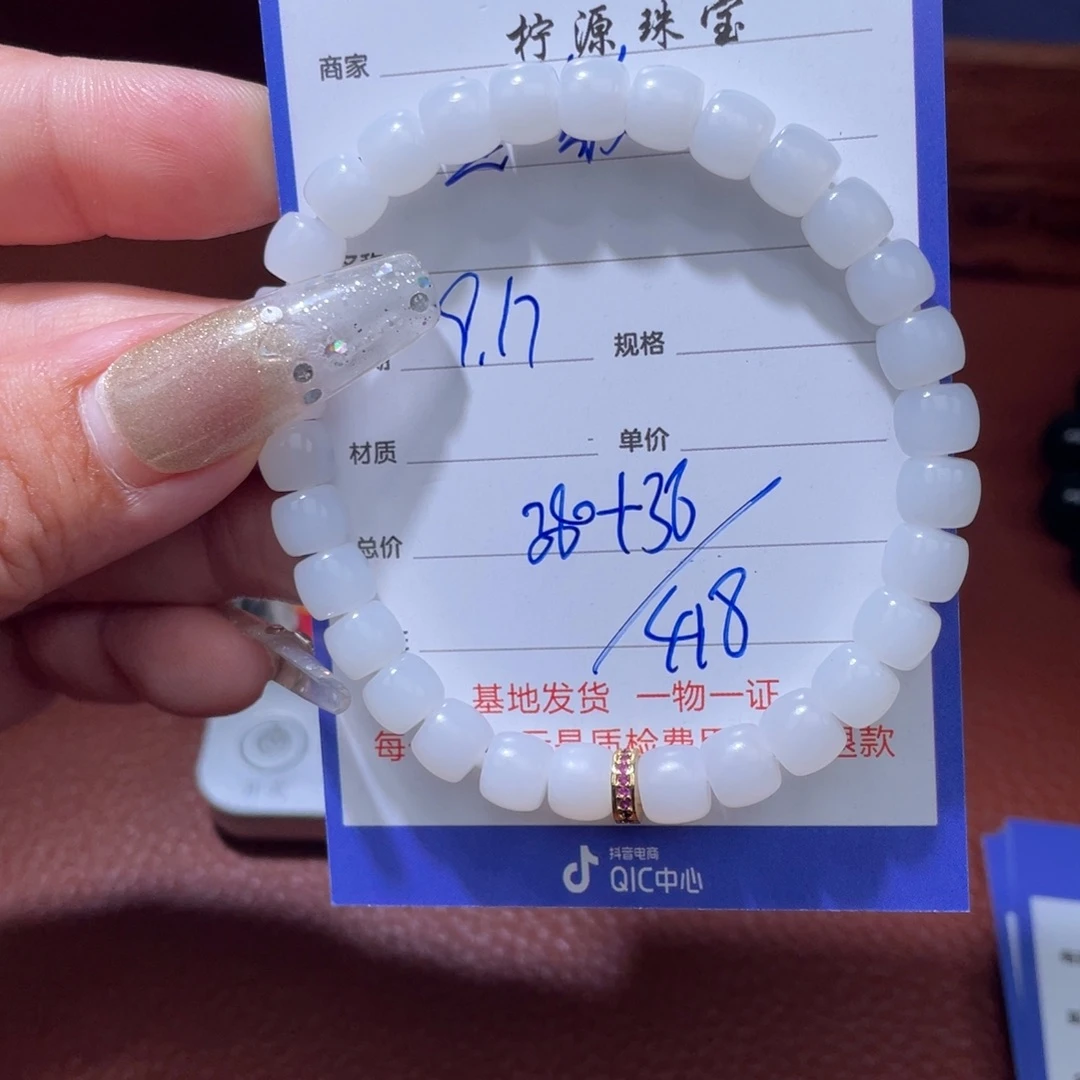 商家 柠源珠宝
9.17 规格
材质 单价
总价 380+38
418
基地发货 一物一证
每 质检费 退款
抖音电商
QIC中心